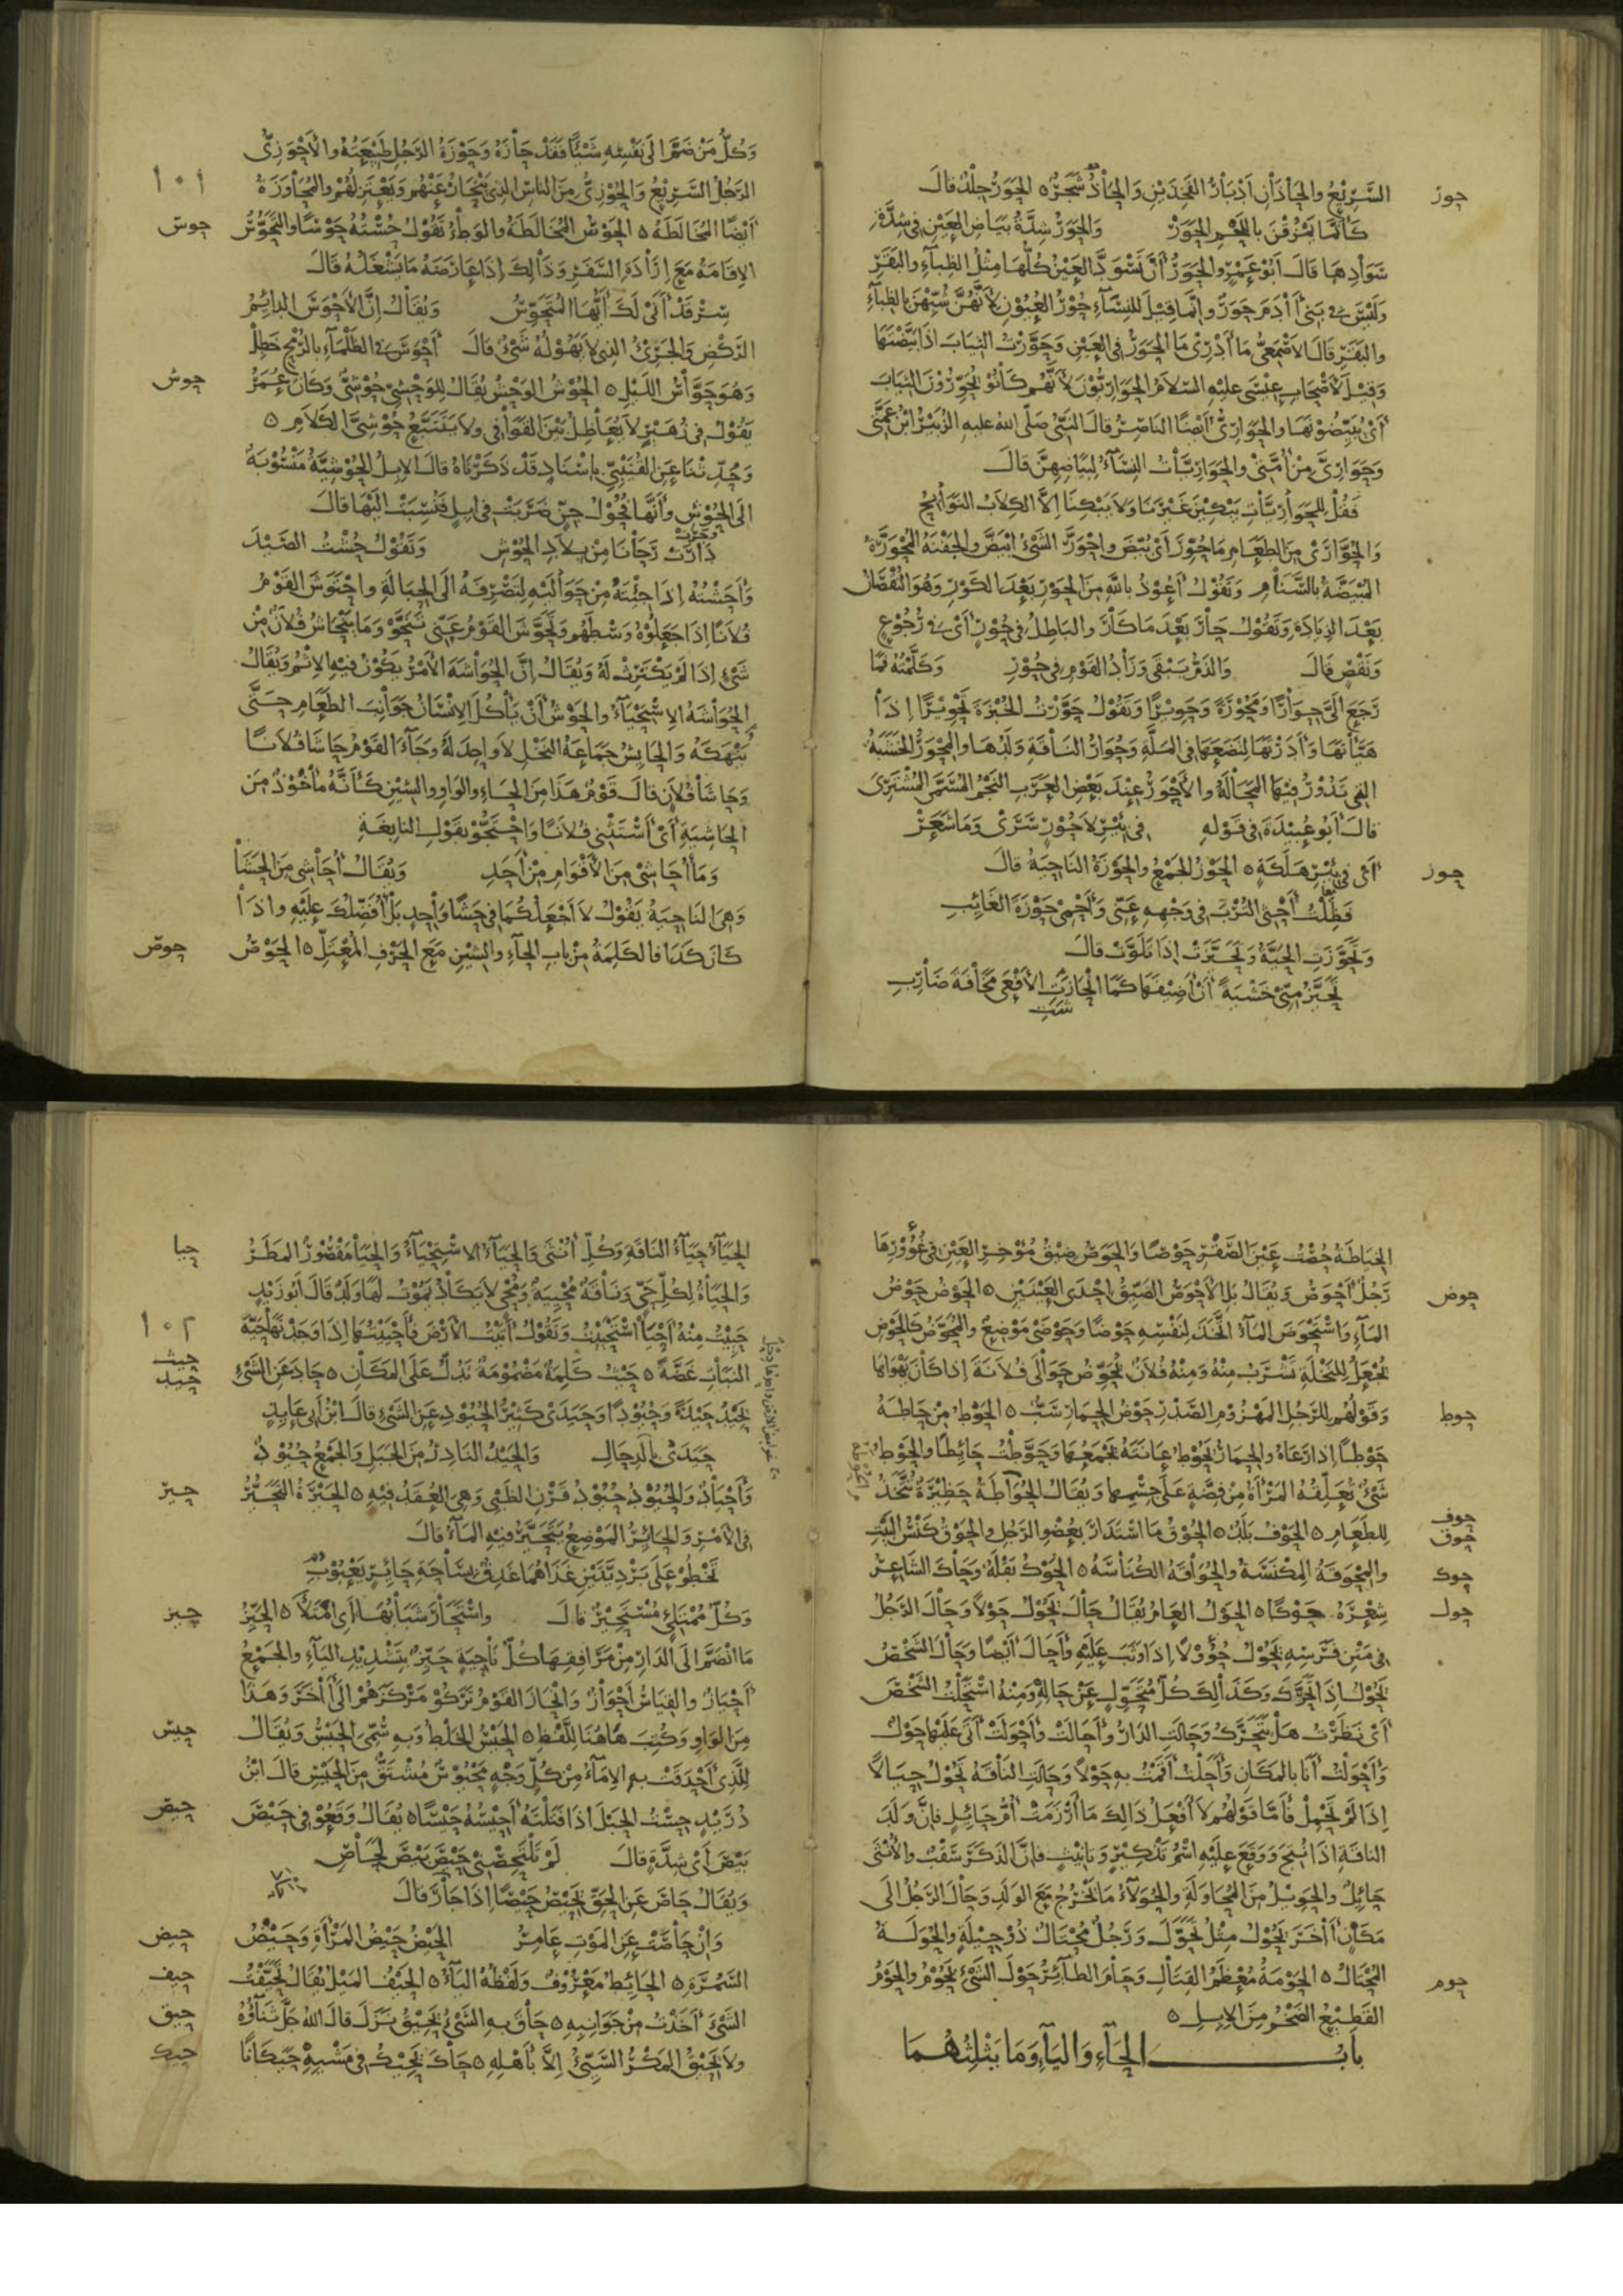 حور
السريع والحاذان ادبار الفخذين والحاذ شجر ٥ الحور جلد قال
كانما يمزقن باللحم الحور والحور شدة بياض العين في شدة
سوادها قال ابو عمرو والحور ان تسود العين كلها مثل الظباء والبقر
وليس في بني اادم حور وانما قيل للنساء حور العيون لانهن شبهن بالظباء
والبقر قال الاصمعي ما ادري ما الحور في العين وحورت الثياب اذا بيضتها
وقيل لاصحاب عيسى عليه السلام الحواريون لانهم كانوا يحورون الثياب
اي يبيضونها والحواري ايضا الناصر قال النبي صلى الله عليه الزبير ابن عمتي
وحواري من امتي والحواريات النساء لبياضهن قال
فقل للحواريات يبكين غيرنا ولا يبكنا الا الكلاب النوابح
والحوارى من الطعام ما حور اي بيض واحور الشيء ابيض والجفنة المحورة
المبيضة بالسنام وتقول اعوذ بالله من الحور بعد الكور وهو النقصان
بعد الزيادة وتقول حار بعد ما كار والباطل في حور اي في رجوع
ونقص قال والذم يبقى وزاد القوم في حور وكلمته فما
رجع الي حوارا ومحورة وحويرا وتقول حورت الخبزة تحويرا اذا
هيأتها وادرتها لتضعها في الملة وحوار الناقة ولدها والمحور الخشبة
التي تدور فيها المحالة والاحور عند بعض العرب النجم المسمى المشترى
قال ابو عبيدة في قوله في بئر لا حور سرى وما شعر
حوز
اي في بئر هلكة ٥ الحوز الجمع والحوزة الناحية قال
فظلت احثي الترب في وجهه عني واحمي حوزة الغائب
وتحوزت الحية وتحيزت اذا تلوت قال
تحيز مني خشية ان اضيفها كما انحازت الافعى مخافة ضارب
وكل من ضم الى نفسه شيئا فقد حازه وحوزة الرجل طبيعته والاحوزي
١٠١
الرجل السريع والحوزي من الناس الذي ينحاز عنهم ويعتزلهم والمحاوزة
حوس
ايضا المخالطة ٥ الحوس المخالطة والوطء تقول حسته حوسا والتحوس
الاقامة مع ارادة السفر وذالك اذا عارضه ما يشغله قال
سر قد انى لك ايها المتحوس ويقال ان الاحوس الدائم
الركض والجريء الذي لا يهوله شيء قال احوس في الظلماء بالرمح خطل
حوش
وهو حواس الليل ٥ الحوش الوحش يقال للوحشي حوشي وكان عمر
يقول في زهير لا يعاظل بين القوافي ولا يتتبع حوشي الكلام ٥
وحدثنا عن القتيبي باسناد قد ذكرناه قال الابل الحوشية منسوبة
الى الحوش وانها فحول جن ضربت في ابل فنسبت اليها قال
دارت رحانا من بلاد الحوش وتقول حشت الصيد
واحشته اذا جئته من حواليه لتصرفه الى الحبالة واحتوش القوم
فلانا اذا جعلوه وسطهم وتحوش القوم عني تنحو وما ينحاش فلان من
شيء اذا لم يكترث له ويقال ان الحواشة الامر يكون فيه الاثم ويقال
الحواشة الاستحياء والحوش ان ياكل الانسان جوانب الطعام حتى
ينهكه والحايش جماعة النخل لا واحد له وجاء القوم حاشا فلانا
وحاشا فلان قال قوم هذا من الحاء والواو والشين كانه ماخوذ من
الحاشية اي استثني فلانا واحتجو بقول النابغة
وما احاشي من الاقوام من احد ويقال احاشي من الحشا
وهي الناحية يقول لا اجعلكما في حشا واحد بل افضلك عليه واذا
حوص
كان كذا فالكلمة من باب الحاء والشين مع الحرف المعتل ٥ الحوص
الخياطة حصت عين الصقر حوصا والحوص ضيق مؤخر العين في غؤورها
حوض
رجل احوص ويقال بل الاحوص الضيق احدى العينين ٥ الحوض حوض
الماء واستحوض الماء اتخذ لنفسه حوضا وحوضى موضع والمحوض كالحوض
يجعل للنخلة تشرب منه ومنه فلان يحوض حوالى فلانة اذا كان يهواها
حوط
وقولهم للرجل المهزوم الصدر حوض الحمار سب ٥ الحوط من حاطه
حوطا اذا رعاه والحمار يحوط عانته يجمعها وحوطت حائطا والحوط
شيء تعلقه المراة من فضة على جسمها ويقال الحواطة حظيرة تتخذ
حوف
حوق
للطعام ٥ الحوف بلد ٥ الحوق ما استدار بعضو الرجل والحوق كنس البيت
حوك
والمحوقة المكنسة والحواقة الكناسة ٥ الحوك بقلة وحاك الشاعر
حول
شعره حوكا ٥ الحول العام يقال حال يحول حولا وحال الرجل
في متن فرسه يحول حؤولا اذا وثب عليه واحال ايضا وحال الشخص
يحول اذا تحرك وكذالك كل متحول عن حاله ومنه استحلت الشخص
اي نظرت هل يتحرك وحالت الدار واحالت واحولت اتى عليها حول
واحولت انا بالمكان واحلت اقمت به حولا وحالت الناقة تحول حيالا
اذا لم تحمل فاما قولهم لا افعل ذالك ما ارزمت ام حائل فان ولد
الناقة اذا نتج ووقع عليه اسم تذكير وتانيث فان الذكر سقب والانثى
حائل والحويل من المحاولة والحولاء ما تخرج مع الولد وحال الرجل الى
مكان ااخر يحول مثل تحول ورجل محتال ذو حيلة والحولة
حوم
المحتال ٥ الحومة معظم القتال وحام الطائر حول الشيء يحوم والحوم
القطيع الضخم من الابل ٥
باب الحاء والياء وما يثلثهما
حيا
الحياء حياء الناقة وكل انثى والحياء الاستحياء والحيا مقصور المطر
والحياة لكل حي وناقة محيية ومحي لا يكاد يموت لها ولد قال ابو زيد
١٠٢
حييت منه احيا استحييت وتقول اتيت الارض فاحييتها اذا وجدتها حية
حيث
حيد
النبات غضة ٥ حيث كلمة مضمومة تدل على المكان ٥ حاد عن الشيء
يحيد حيدة وحيودا وحيدى كثير الحيود عن الشيء قال ابن ابي عايذ
حيدى بالدحال والحيد النادر من الجبل والجمع حيود
حير
واحياد والحيود حيود قرن الظبي وهي العقد فيه ٥ الحيرة التحير
في الامر والحائر الموضع يتحير فيه الماء قال
تخطو على برديتين غذاهما غدق بساحة حائر يعبوب
حيز
وكل ممتلئ مستحير قال واستحار شبابها اي امتلا ٥ الحيز
ما انضم الى الدار من مرافقها كل ناحية حيز بتشديد الياء والجمع
احياز والقياس احواز وانحاز القوم تركو مركزهم الى ااخر وهذا
حيس
من الواو وكتب هاهنا للفظ ٥ الحيس الخلط وبه سمي الحيس ويقال
للذي احدقت به الاماء من كل وجه محيوس مشتق من الحيس قال ابن
حيص
دريد حست الحبل اذا فتلته احيسه حيسا ٥ يقال وقعو في حيص
بيص اي شدة قال لم تلتحصني حيص بيص لحاص
ويقال حاص عن الحق يحيص حيصا اذا جار قال
حيض
وان حاصت عن الموت عامر الحيض حيض المراة وحيض
حيف
السمرة ٥ الحائط معروف ولفظه الياء ٥ الحيف الميل يقال تحيفت
حيق
الشيء اخذت من جوانبه ٥ حاق به الشيء يحيق نزل قال الله جل ثناؤه
حيك
ولا يحيق المكر السيئ الا باهله ٥ حاك يحيك في مشيه حيكانا